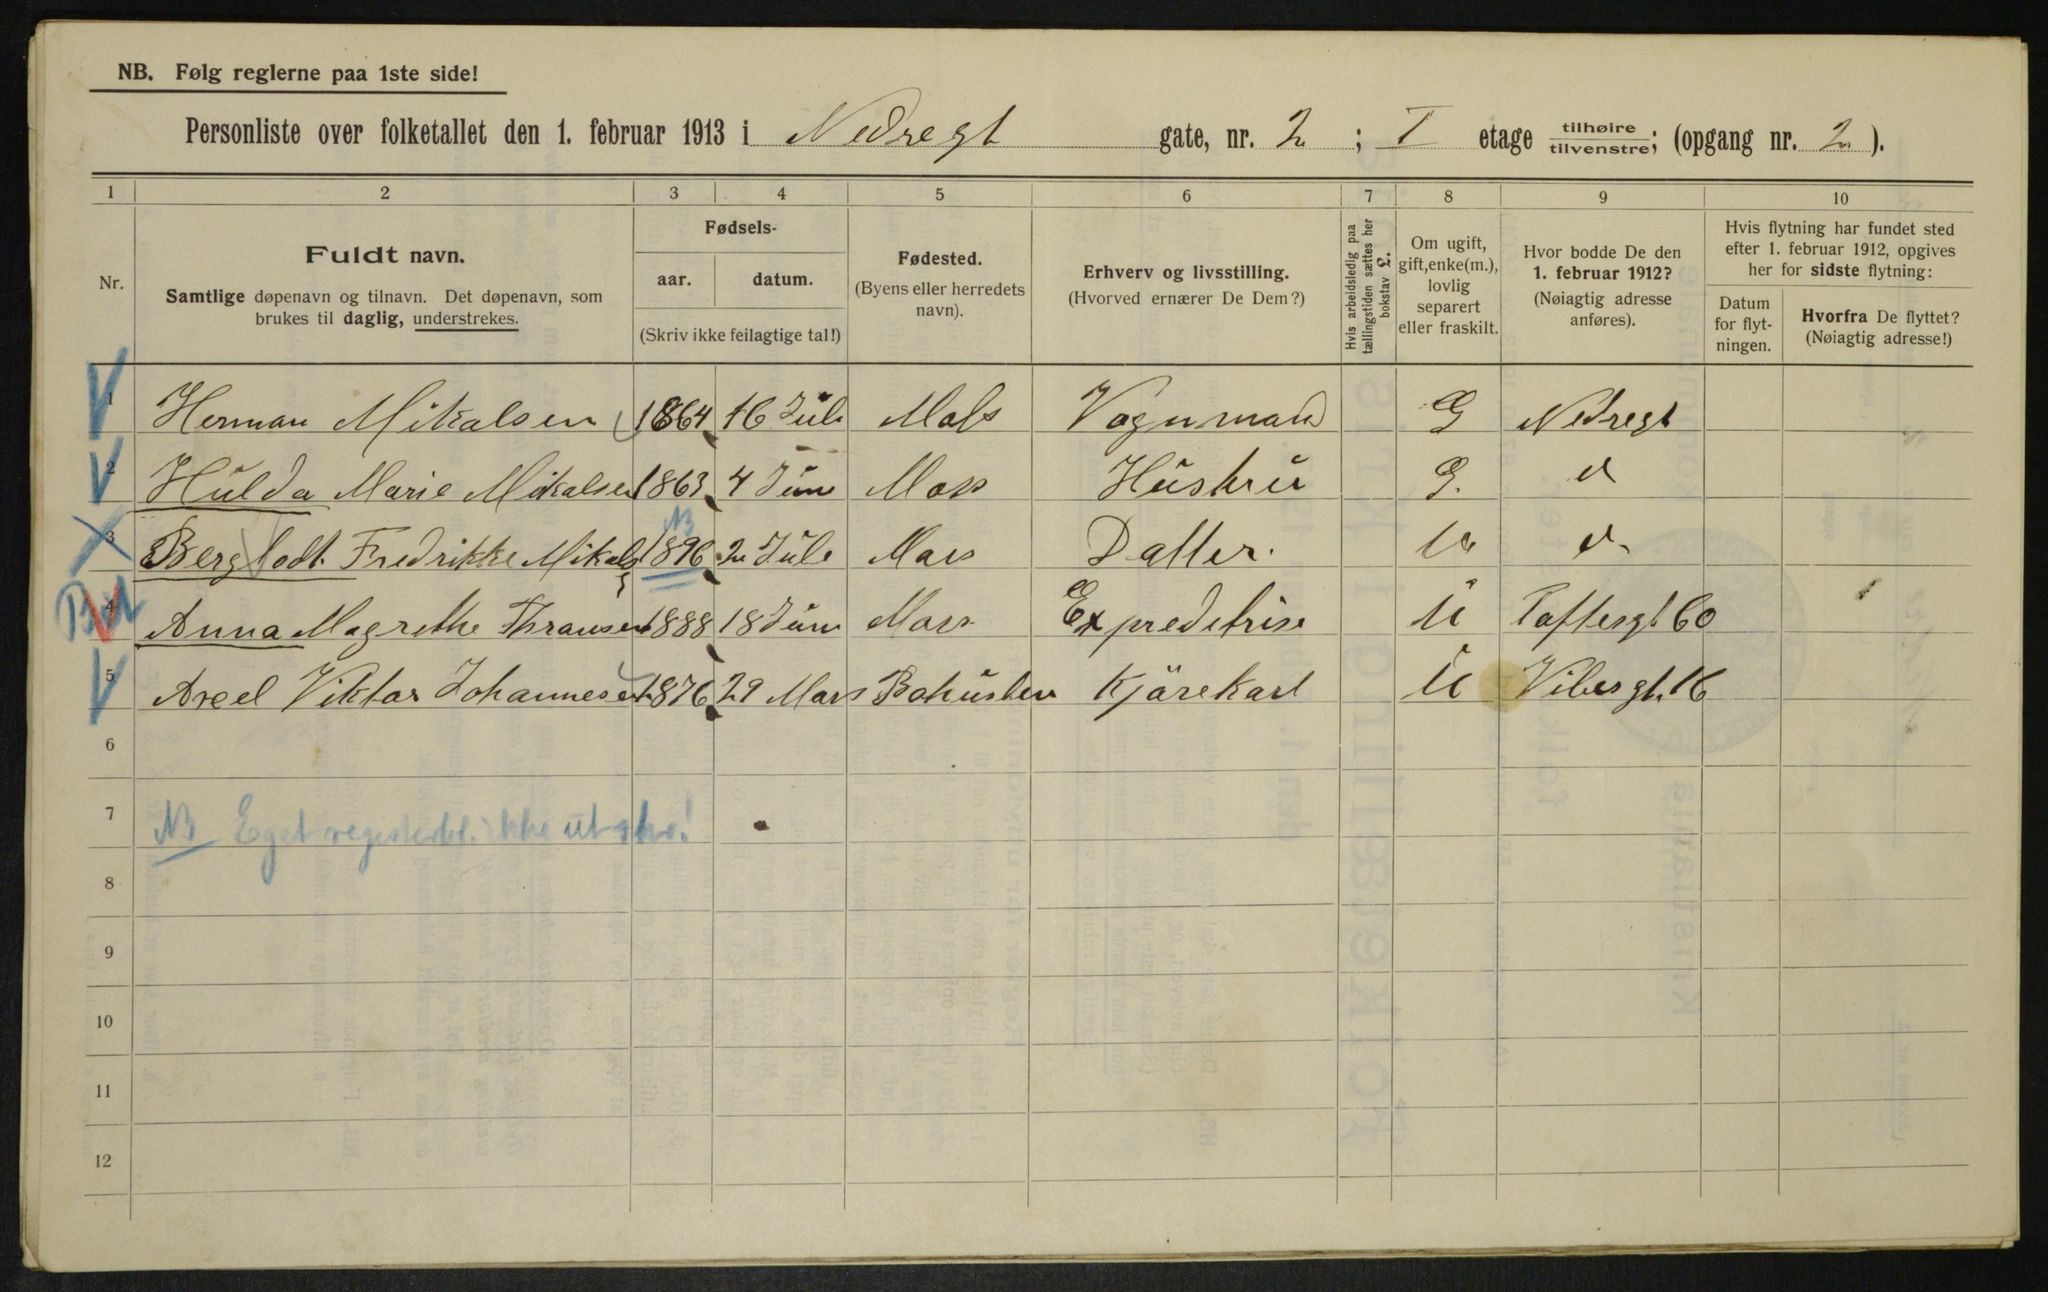 NB. Følg reglerne paa 1ste side!
Personliste over folketallet den 1. februar 1913 i Nedregt gate, nr. 2 ; I etage tilhøire tilvenstre; (opgang nr. 2 ).
1 2 3 4 5 6 7 8 9 10
Nr.
Fuldt navn.
Samtlige døpenavn og tilnavn. Det døpenavn, som
brukes til daglig, understrekes.
Fødsels-
aar. datum.
(Skriv ikke feilagtige tal!)
Fødested.
(Byens eller herredets
navn).
Erhverv og livsstilling.
(Hvorved ernærer De Dem?)
Hvis arbeidsledig paa
tællingstiden sættes her
bokstav L.
Om ugift,
gift, enke(m.),
lovlig
separert
eller fraskilt.
Hvor bodde De den
1. februar 1912?
(Nøiagtig adresse
anføres).
Hvis flytning har fundet sted
efter 1. februar 1912, opgives
her for sidste flytning:
Datum
for flyt-
ningen.
Hvorfra De flyttet?
(Nøiagtig adresse!)
1 Herman Mikalsen 1864 16 Juli Moss Vognmand G Nedregt
2 Hulda Marie Mikalsen 1863 4 Juni Moss Hustru G. d
NB
3 Fredrikke Mikals 1896 2 Juli Moss Datter. U d
4 Anna Magrethe Thransen 1888 18 Juni Moss Expreditrise U Toftesgt 60
5 Axel Viktor Johannesen 1876 29 Mars Bohuslen Kjörekarl U Vibesgt. 16
6
7 NB Eget registerbl. ikke utskr.!
8
9
10
11
12